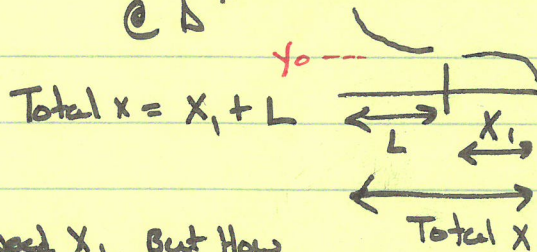 @ D
y₀
Total x = X₁ + L
L
X₁
Total X
need X₁ But How